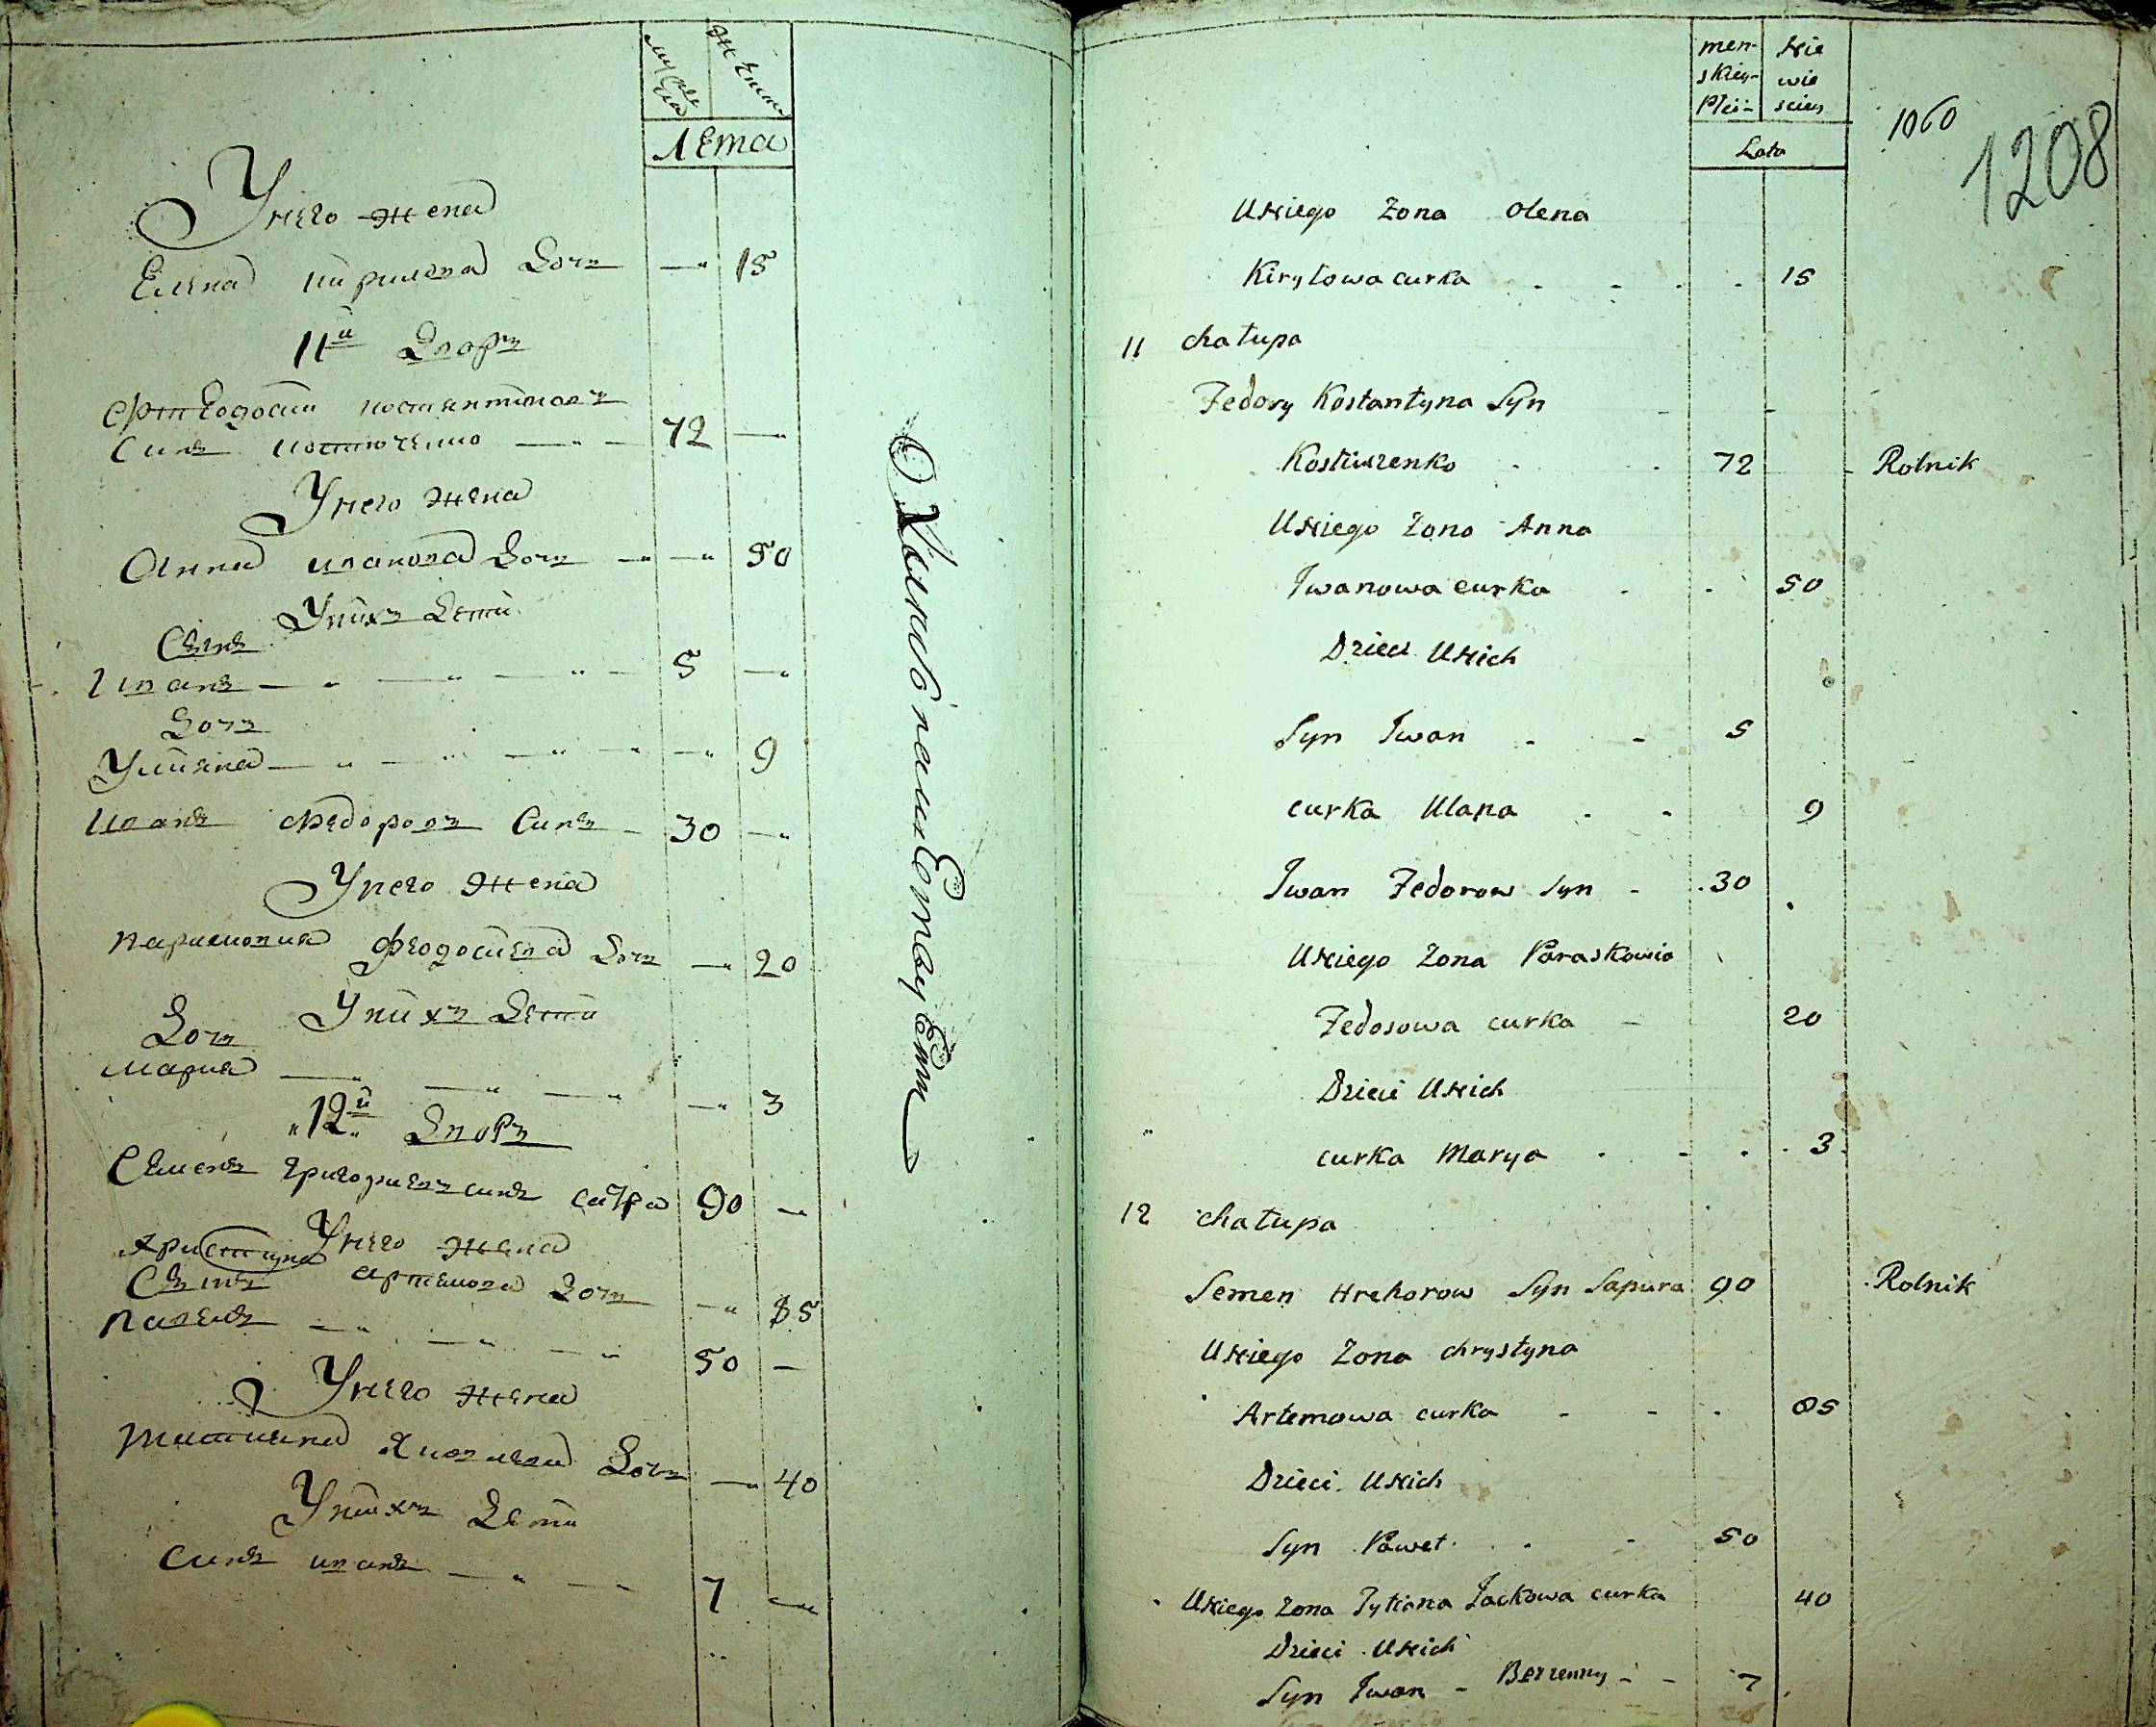 мужеска
женска
лета
У него жена
Елена кирилова Дочь — 15
11й Дворъ
Фтеодосий костянтиновъ
Синъ костюченко — 72 —
У него жена
Анна иванова Дочь — — 50
У нихъ Дети
Синъ
Иванъ — — — — 5 —
Дочь
Улияна — — — — — 9
Иванъ Федоровъ Синъ — 30 —
У него жена
Парасковия Феодосиева Дочь — 20
У нихъ Дети
Дочь
Мария — — — — 3
12й Дворъ
Семенъ григориевъ синъ сапура 90 —
У него жена
Христина
артемова Дочь — 85
Синъ
Павелъ — — — 50 —
У него жена
Татияна Яковлева Дочь — 40
У нихъ Дети
Синъ иванъ — — 7 —
men-
skiey-
Płci-
Nie
wie
sciey
Lata
1060
1208
U Niego Żona Olena
Kiryłowa curka 15
11 chałupa
Fedosy Kostantyna Syn
Kostiuczenko 72 Rolnik
U Niego Żona Anna
Iwanowa curka 50
Dzieci U Nich
Syn Iwan 5
curka Ulana 9
Iwan Fedorow Syn - 30
U Niego Żona Paraskowia
Fedosowa curka - 20
Dzieci U Nich
curka Marya 3
12 chałupa
Semen Hrehorow Syn Sapura 90 Rolnik
U Niego Żona Chrystyna
Artemowa curka 85
Dzieci U Nich
Syn Paweł 50
U Niego Żona Tytiana Jackowa curka 40
Dzieci U Nich
Syn Iwan - Bezzenny - - 7